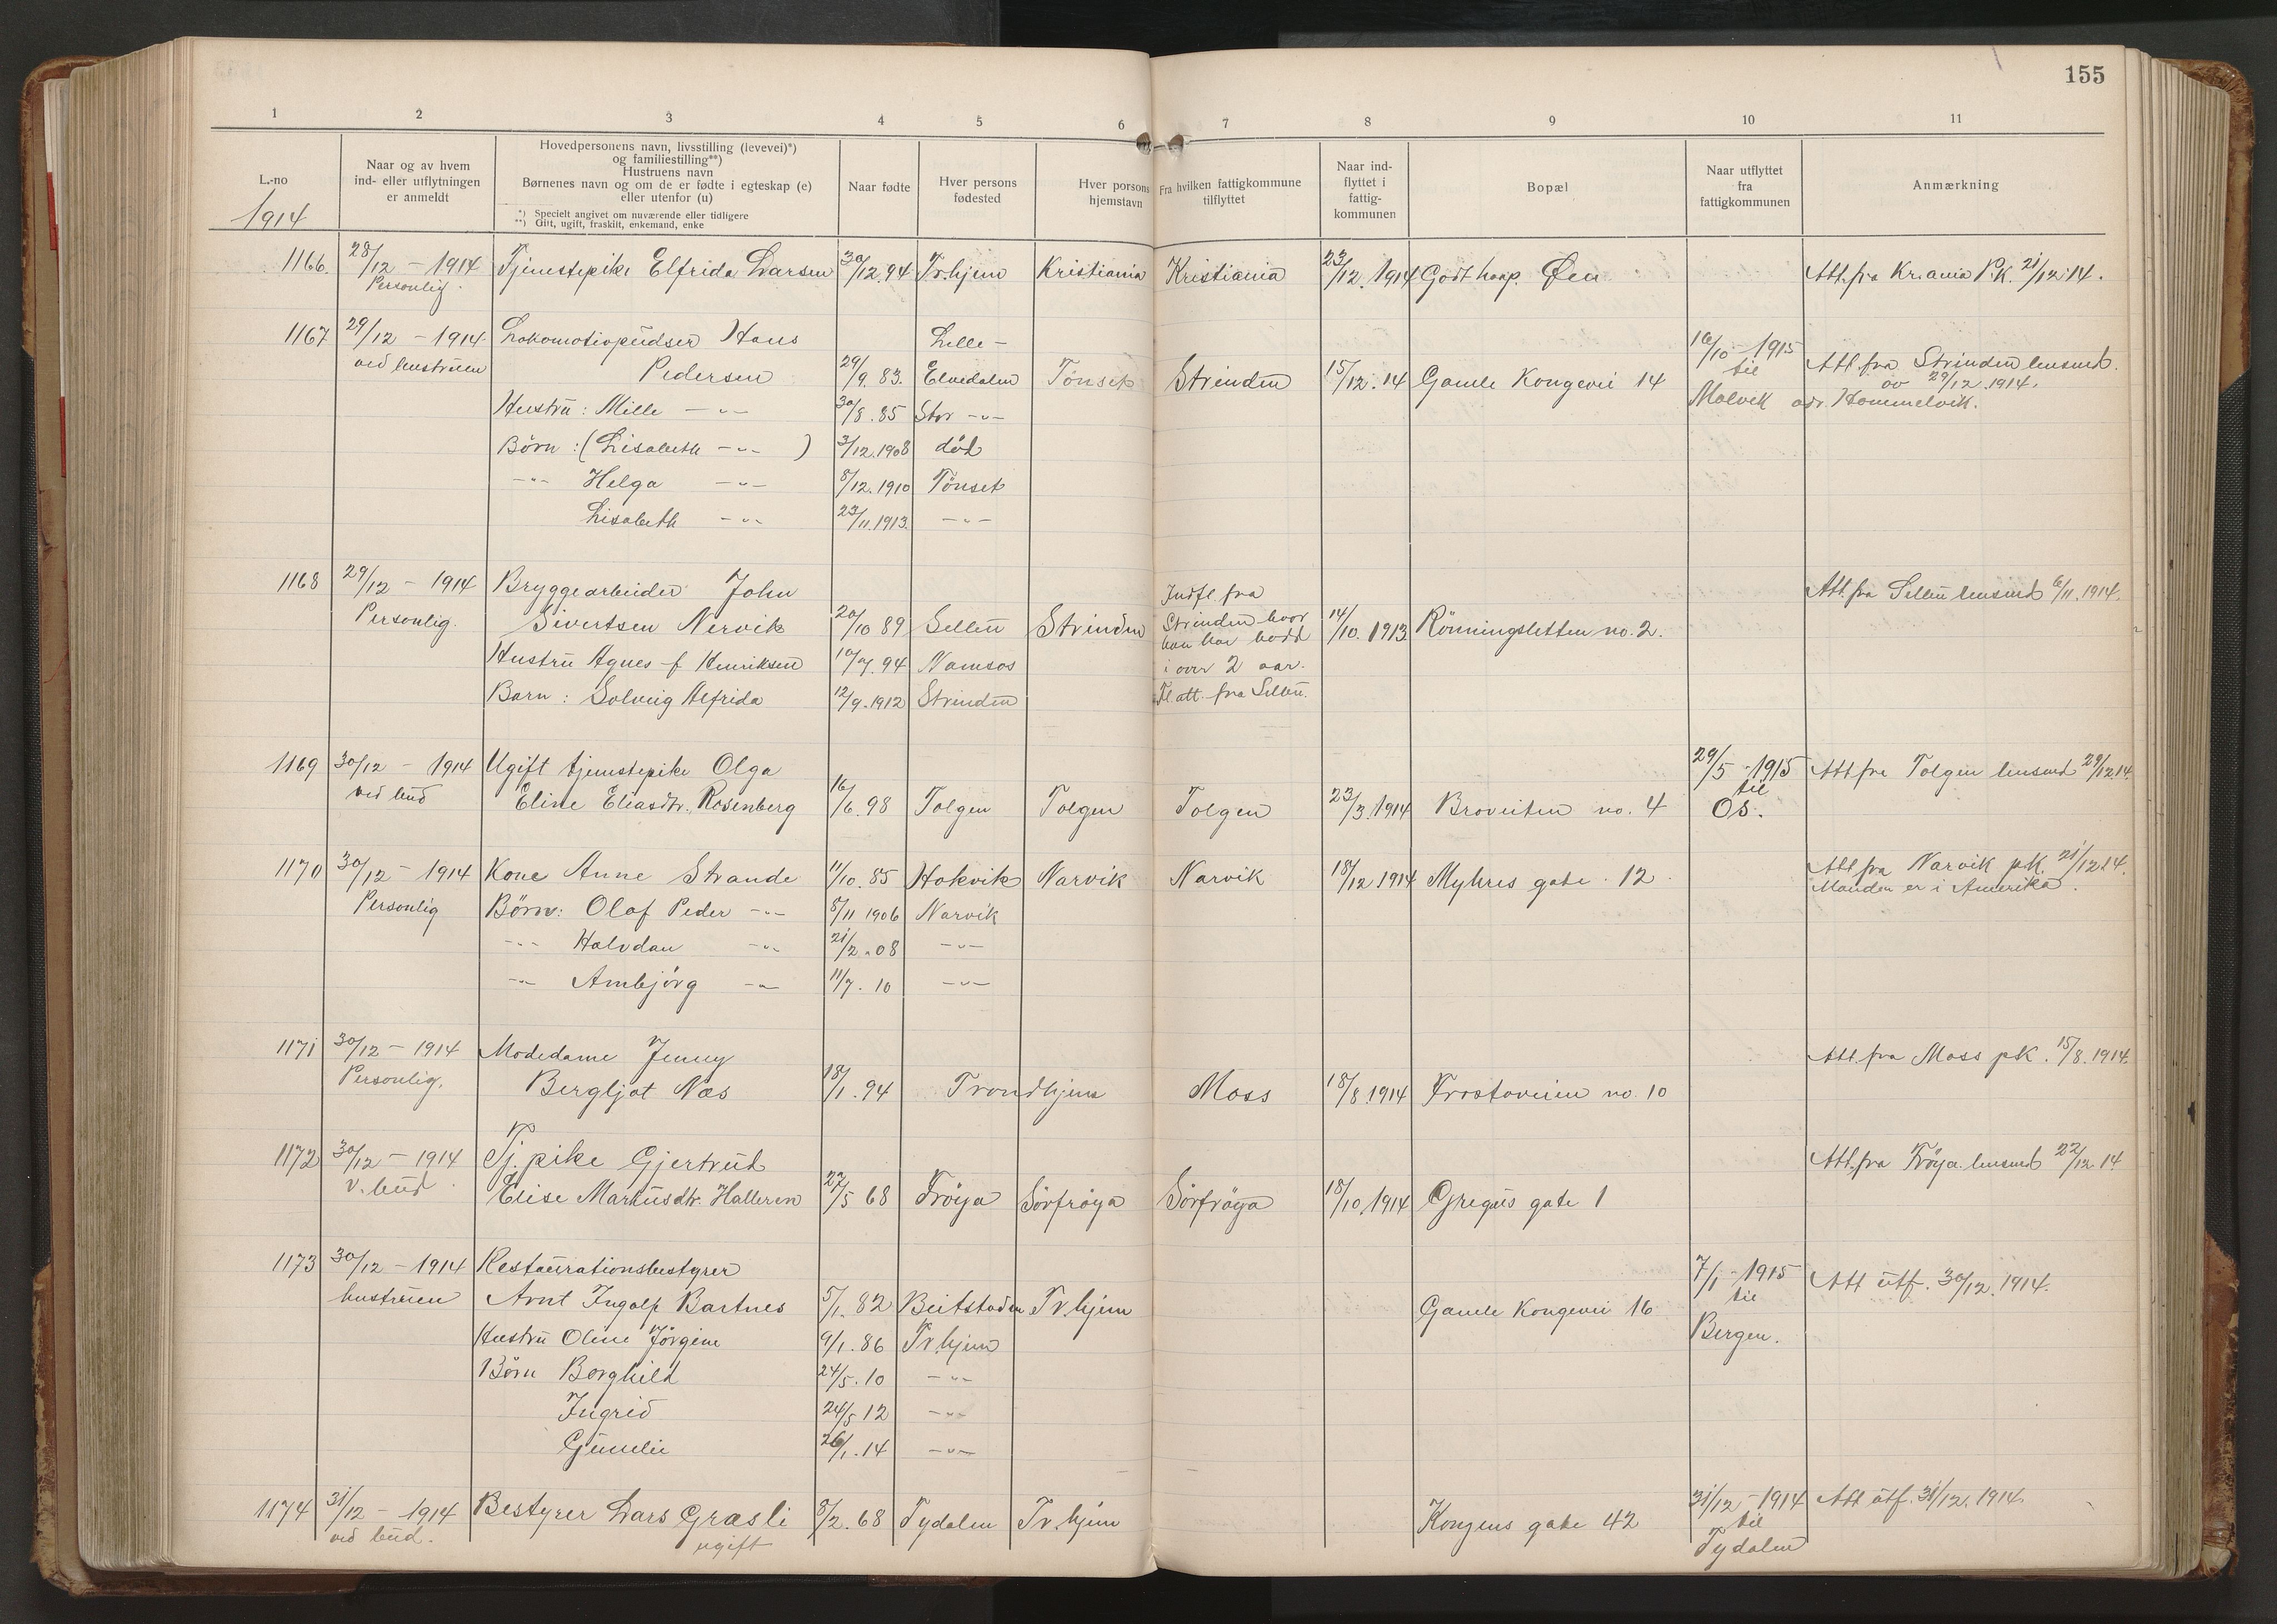 155
1 2 3 4 5 6 7 8 9 10 11
L.-no
1914
Naar og av hvem
ind- eller utflytningen
er anmeldt
Hovedpersonens navn, livsstilling (levevei)*)
og familiestilling**)
Hustruens navn
Børnenes navn og om de er fødte i egteskap (e)
eller utenfor (u)
*) Specielt angivet om nuværende eller tidligere
**) Gift, ugift, fraskilt, enkemand, enke
Naar fødte
Hver persons
fødested
Hver porsons
hjemstavn
Fra hvilken fattigkommune
tilflyttet
Naar ind-
flyttet i
fattig-
kommunen
Bopæl
Naar utflyttet
fra
fattigkommunen
Anmærkning
1166. 28/12 - 1914 Tjenestepike Elfrida Larsen 30/12.94 Tr.hjem Kristiania Kristiania 23/12.1914 Godthaap. Øen Att. fra Kr.ania P.K. 21/12.14.
Personlig.
1167 29/12 - 1914 Lokomotivpudser Hans Lille- 16/10-1915
ved hustruen Pedersen 29/9.83. Elvedalen Tönset Strinden 15/12.14 Gamle Kongevei 14 til Att fra Strinden lensmd.
ov 29/12.1914.
Hustru: Mille -"- 30/8.85 Stor -"- Malvik adr. Hommelvik.
Börn: (Lisabeth -"- ) 3/12.1908 död
-"- Helga -"- 8/12.1910 Tönset
Lisabeth -"- 23/11.1913. -"-
1168 29/12 - 1914 Bryggearbeider John Indfl. fra Att. fra Selbu lensmd 6/11.1914.
Personlig. Sivertsen Nervik 20/10 89 Selbu Strinden Strinden hvor 14/10.1913 Rönningsletten no. 2.
han har bodd
Hustru Agnes f. Henriksen 10/7.94 Namsos i over 2 aar.
Barn: Solveig Alfrida 12/9.1912 Strinden Fl. att. fra Selbu.
1169 30/12 - 1914 Ugift tjenstepike Olga 29/5-1915 Att fra Tolgen lensmd 29/12.14.
ved bud Eline Eliasdtr. Rosenberg 16/6.98 Tolgen Tolgen Tolgen 23/3.1914 Broveiten no. 4 til
Os.
1170 30/12 - 1914 Kone Anne Strande 11/10.85 Hokvik Narvik Narvik 18/12 1914 Myhres gate 12 Att fra Narvik p.k. 21/12.14.
Manden er i Amerika.
Personlig Börn: Olaf Peder -"- 8/11 1906 Narvik
-"- Halvdan -"- 21/2.08 -"-
-"- Arnbjörg -"- 11/7.10 -"-
1171 30/12 - 1914 Modedame Jenny Att. fra Moss pk. 15/8.1914.
Personlig. Bergljot Næs 18/1.94 Trondhjem Moss 18/8.1914 Frostaveien no. 10
1172 30/12 - 1914 Tj. pike Gjertrud Att. fra Fröya lensmd 22/12.14
v. bud Elise Markusdtr. Halleren 27/5 68 Fröya Sörfröya Sörfröya 18/10.1914 Gregus gate 1
1173 30/12 - 1914 Restaurationsbestyrer 7/1-1915 Att utf. 30/12.1914.
hustruen Arnt Ingolf Bartnes 5/1.82 Beitstaden Tr.hjem Gamle Kongevei 16 til
Hustru Oline Jörgine 9/1.86 Tr.hjem Bergen.
Börn Borghild 24/5.10 -"-
Ingrid 24/5 12 -"-
Gunelie 26/1.14 -"-
1174 31/12 - 1914 Bestyrer Lars Græsli 8/2.68 Tydalen Tr.hjem Kongens gate 42 31/12-1914 Att utf. 31/12.1914.
ved bud. ugift til
Tydalen